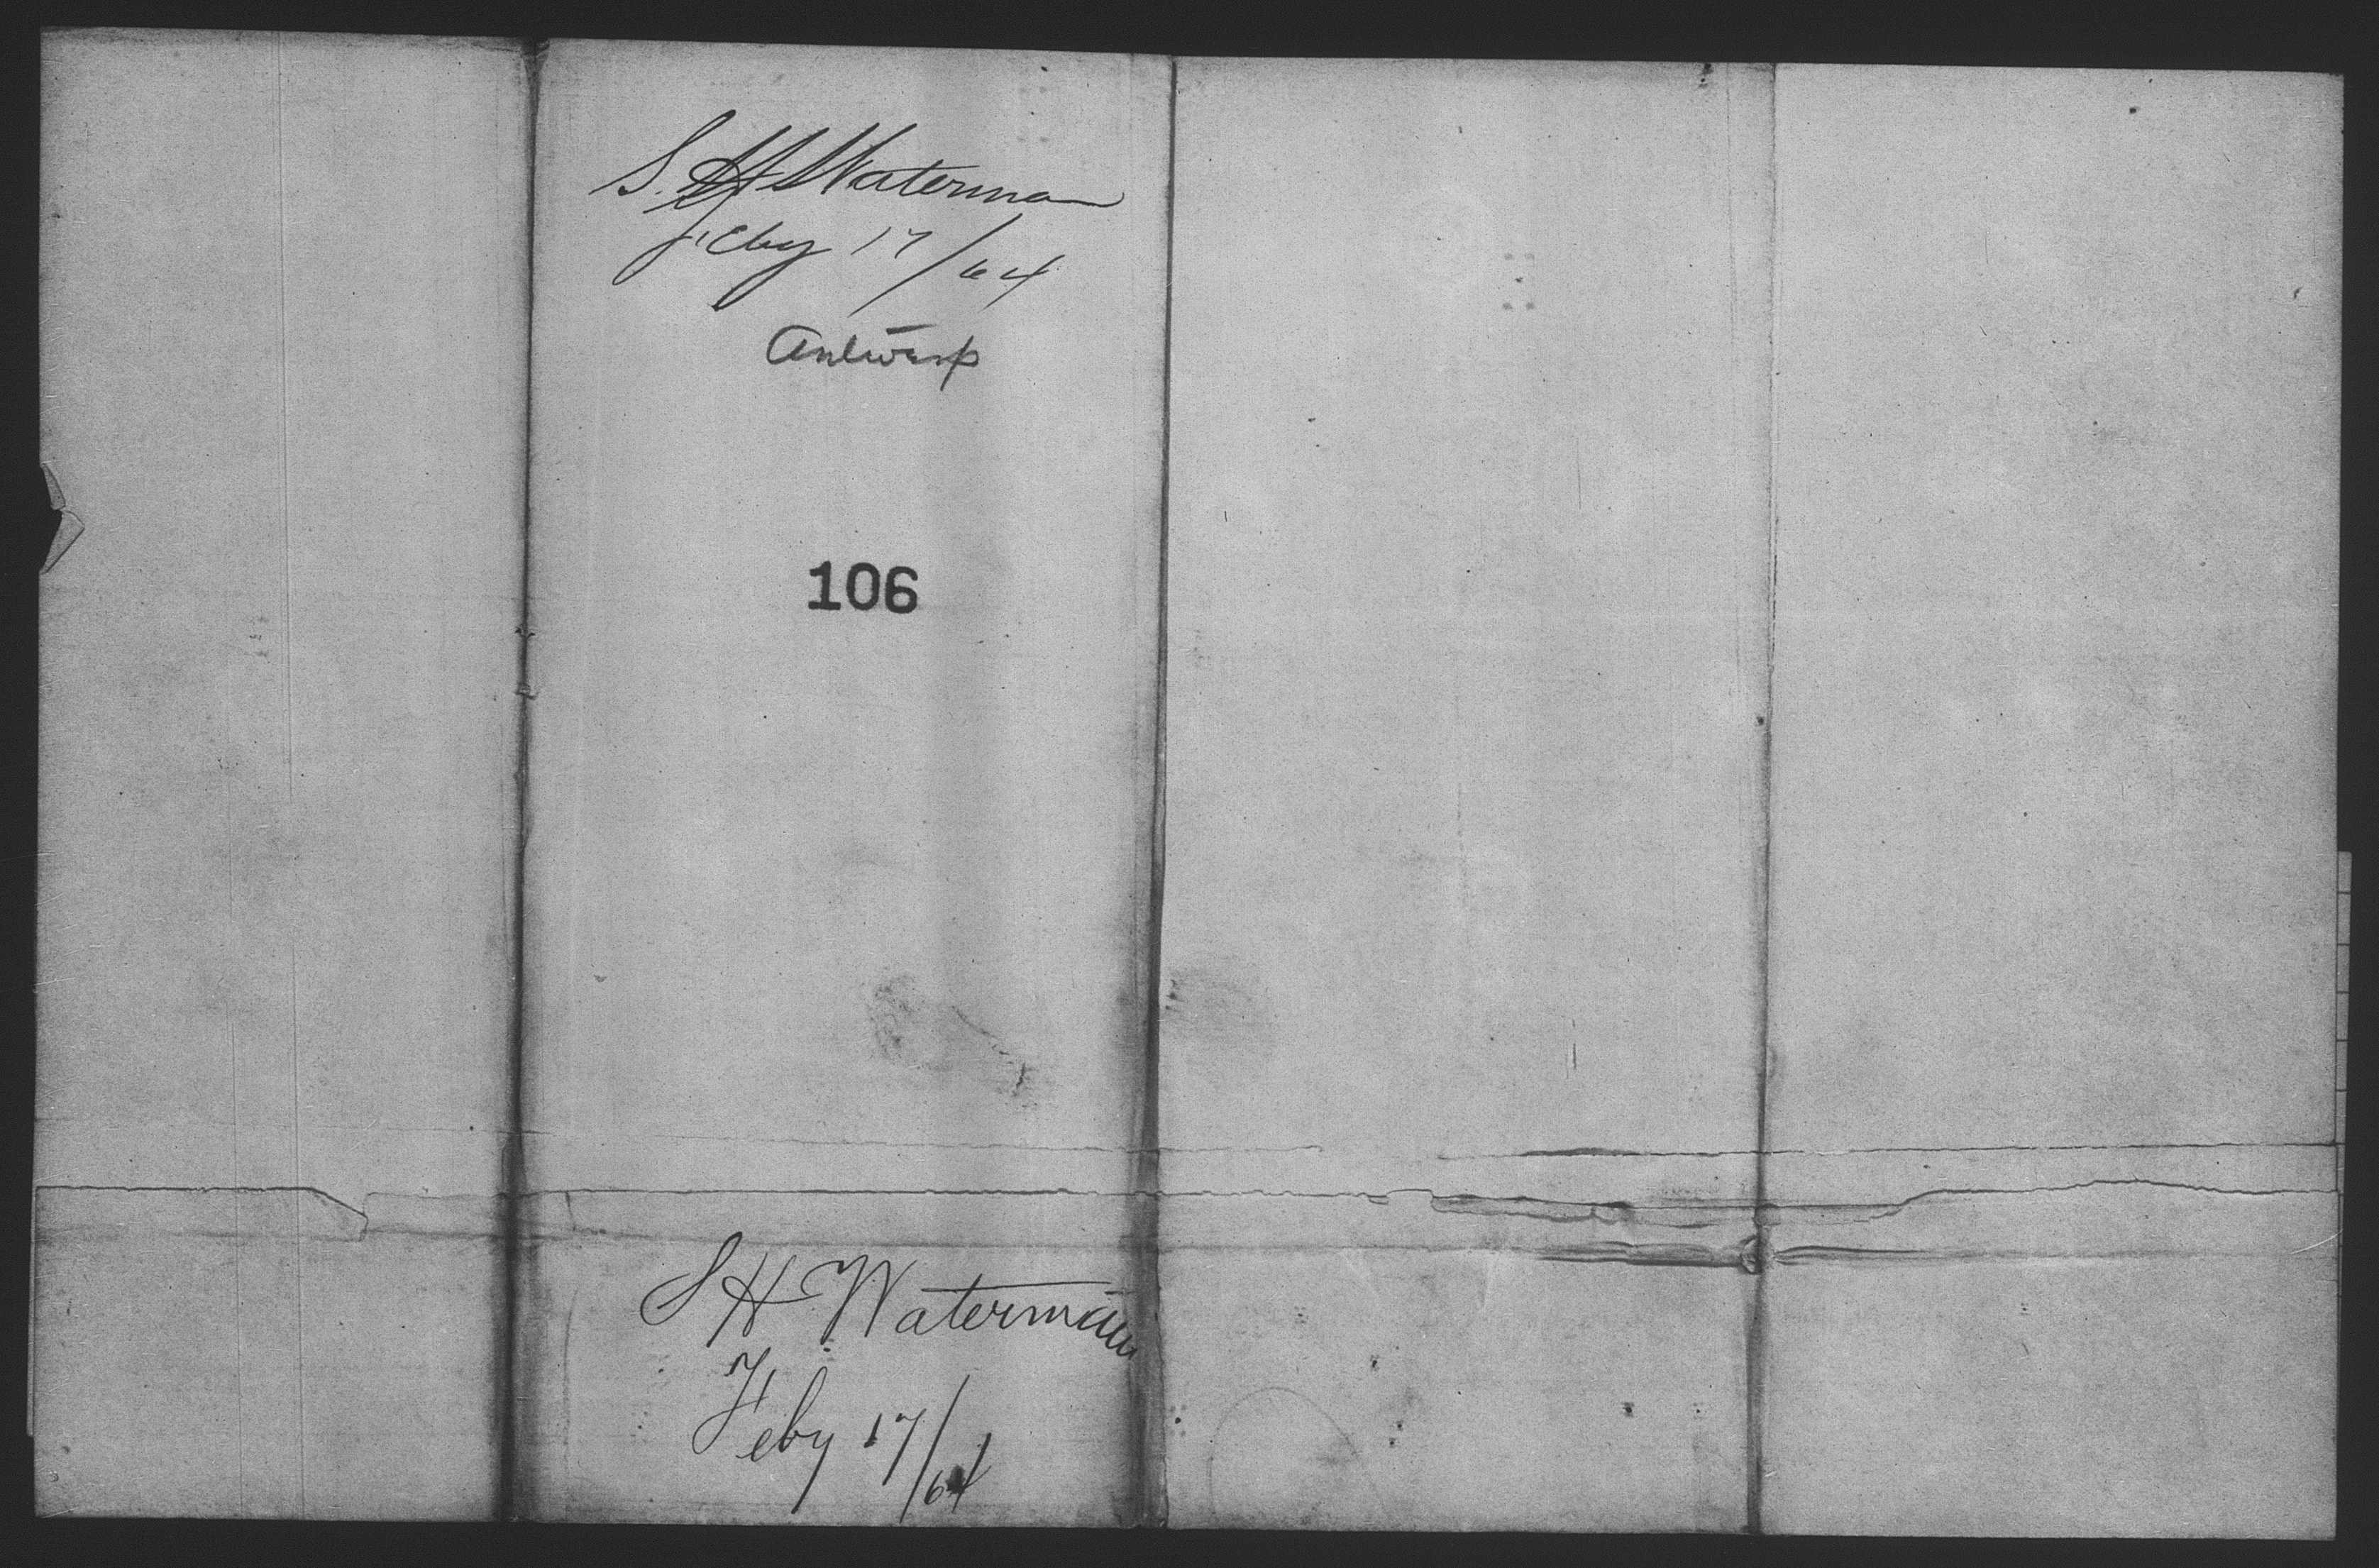 S. H Waterman
Feby 17/64
Antwerp
106
S H Waterman
Feby 17/64